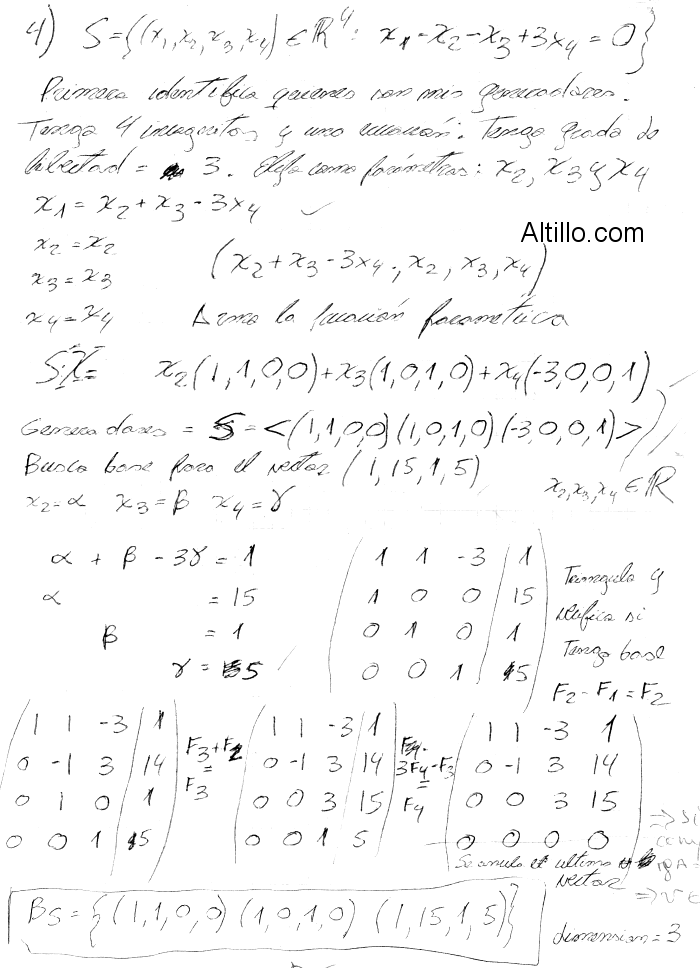 4) S={(x₁,x₂,x₃,x₄) ∈ ℝ⁴: x₁-x₂-x₃+3x₄=0}
Primero identifico quienes son mis generadores.
Tengo 4 incognitas y una ecuación. Tengo grado de
libertad = 3. Elijo como parámetros: x₂, x₃ y x₄
x₁ = x₂ + x₃ - 3x₄ ✓
Altillo.com
x₂ = x₂
(x₂+x₃-3x₄, x₂, x₃, x₄)
x₃ = x₃
x₄ = x₄ Armo la ecuación parametrica
S: X = x₂(1,1,0,0)+x₃(1,0,1,0)+x₄(-3,0,0,1)
Generadores = S = <(1,1,0,0)(1,0,1,0)(-3,0,0,1)>
x₂,x₃,x₄ ∈ ℝ
Busco base para el vector (1,15,1,5)
x₂=α x₃=β x₄=γ
α + β - 3γ = 1
α = 15
β = 1
γ = 5
1 1 -3 | 1
1 0 0 | 15
0 1 0 | 1
0 0 1 | 5
Triangulo y
verifico si
tengo base
F₂ - F₁ = F₂
1 1 -3 | 1
0 -1 3 | 14
0 1 0 | 1
0 0 1 | 5
F₃+F₂
=
F₃
1 1 -3 | 1
0 -1 3 | 14
0 0 3 | 15
0 0 1 5
3F₄-F₃
=
F₄
1 1 -3 1
0 -1 3 14
0 0 3 15
0 0 0 0
Se anulo el ultimo
vector
⇒ si
Bs = {(1,1,0,0) (1,0,1,0) (1,15,1,5)}
dimension = 3